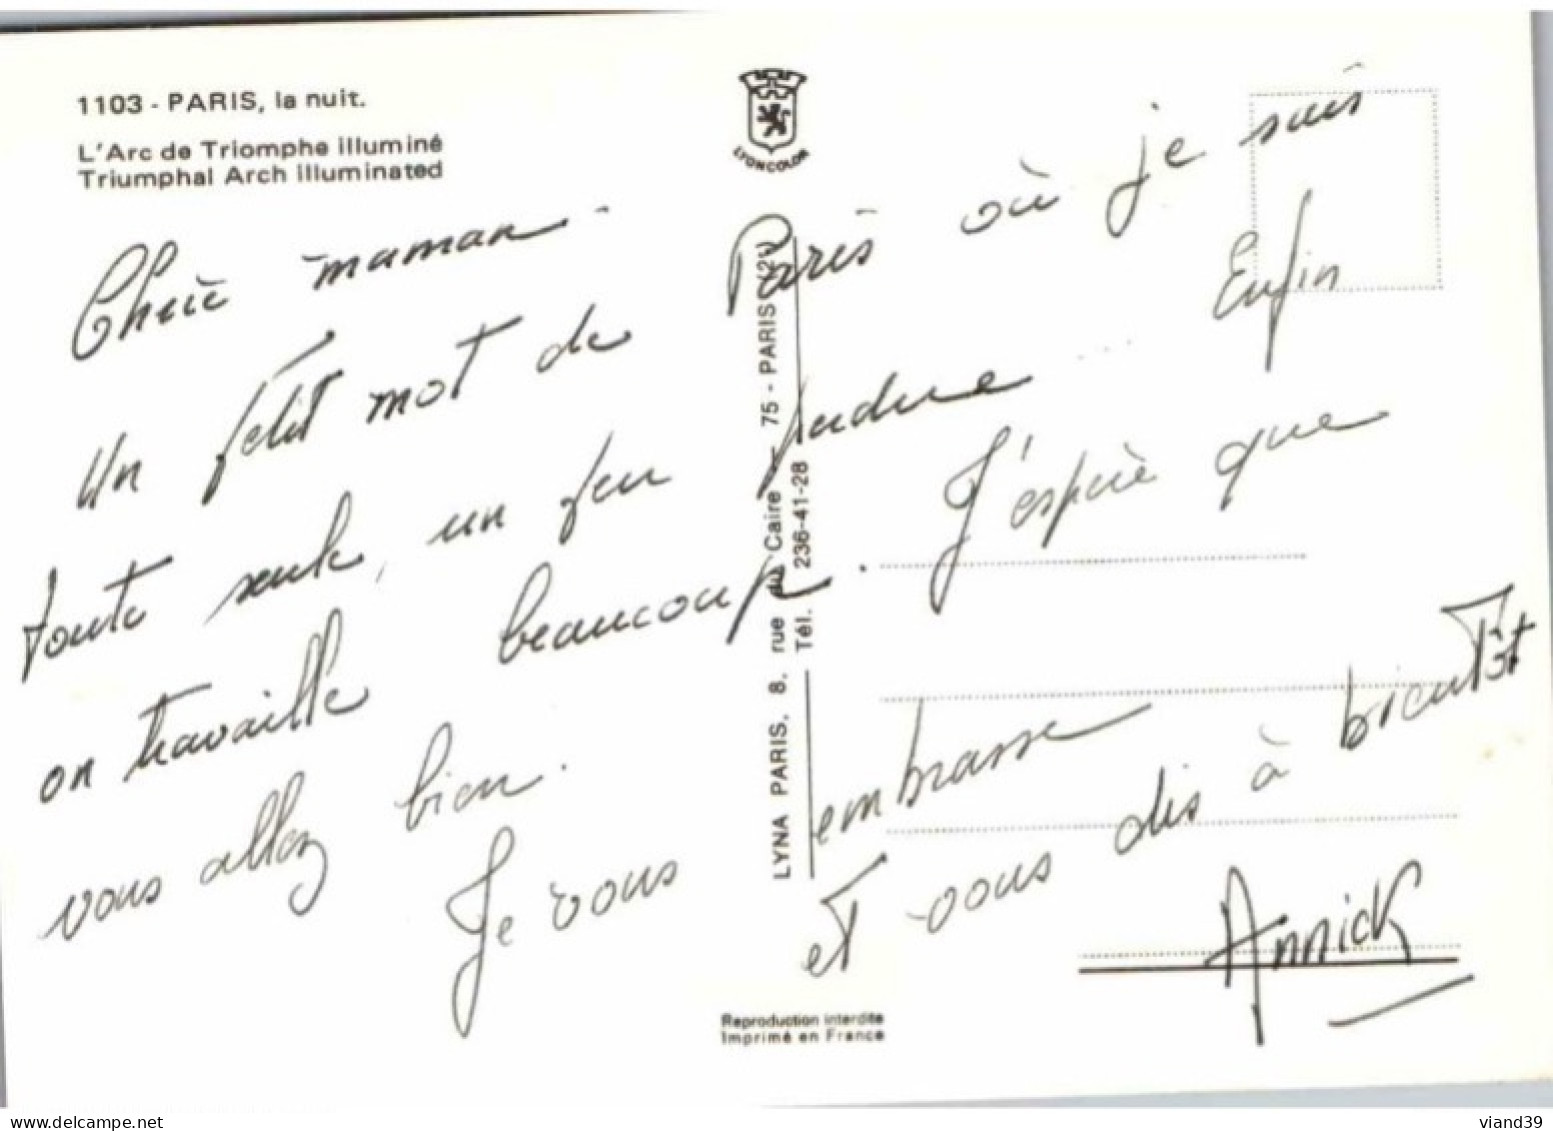 1103 - PARIS, la nuit.
L'Arc de Triomphe illuminé
Triumphal Arch illuminated
LYONCOLOR
Chère maman -
Un petit mot de Paris où je suis
toute seule, un peu perdue ... Enfin
on travaille beaucoup. J'espère que
vous allez bien.
Je vous embrasse
et vous dis à bientôt
Annick
LYNA PARIS, 8, rue du Caire - 75 - PARIS (2e)
Tél. 236-41-28
Reproduction interdite
Imprimé en France
viand39